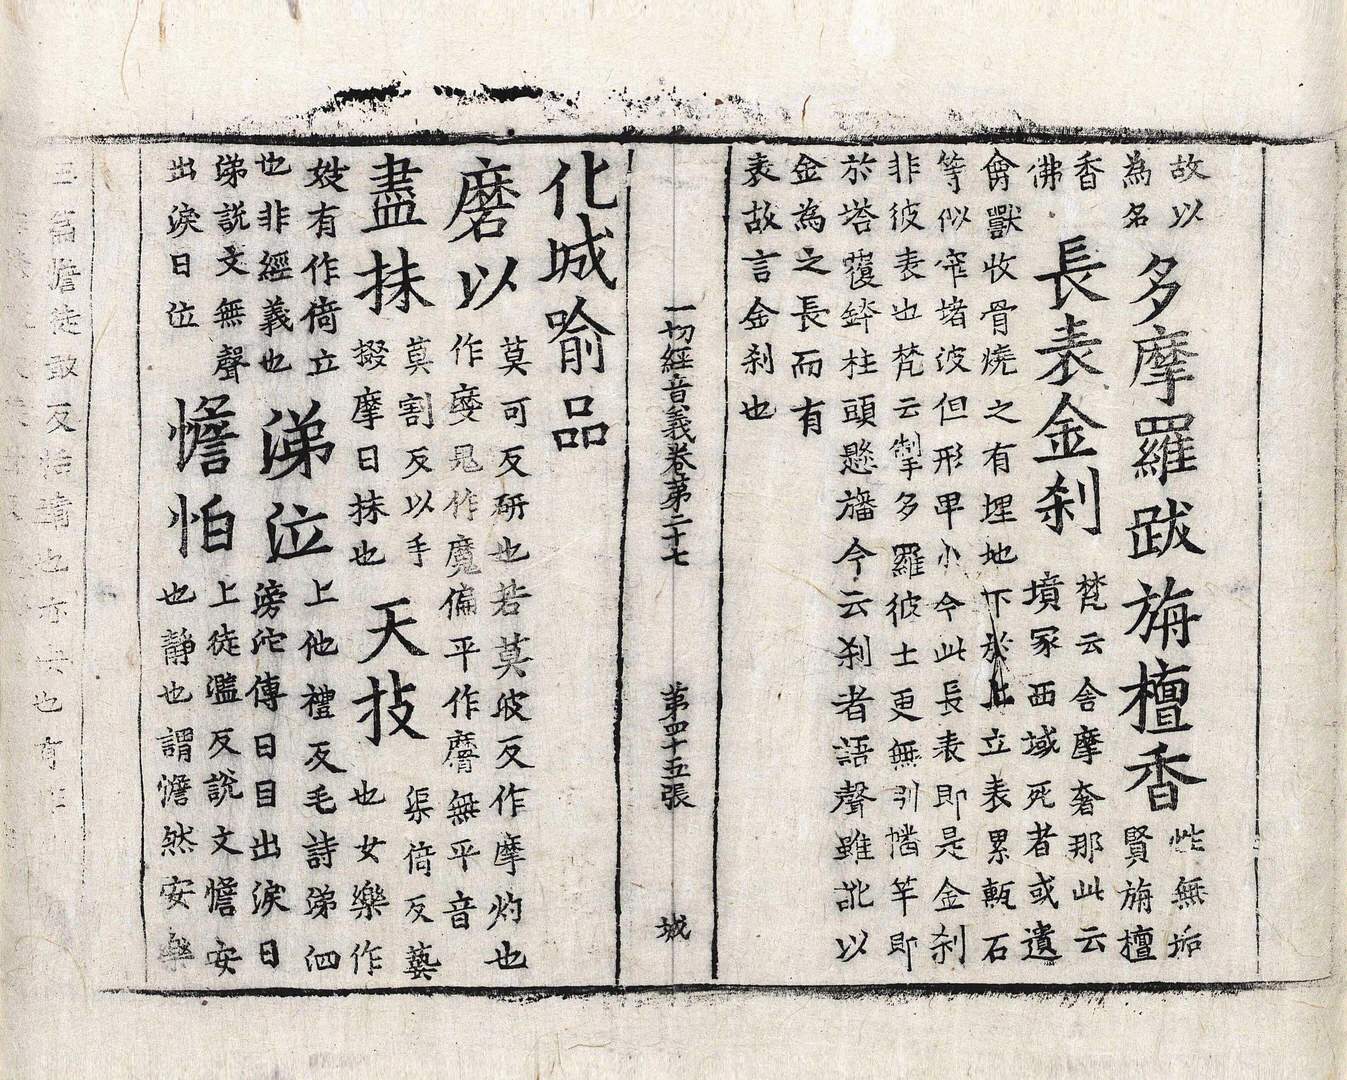 故以
為名
多摩羅跋旃檀香
性無垢
賢旃檀
香
佛
長表金刹
梵云舍摩奢那此云
墳冢西域死者或遺
禽獸收骨燒之有埋地下於上立表累甎石
等似窣堵波但形甲小今此長表即是金刹
非彼表也梵云掣多羅彼土更無別幡竿即
於塔覆鉢柱頭懸旛今云刹者語聲雖訛以
金為之長而有
表故言金刹也
一切經音義卷第二十七 第四十五張 城
化城喻品
磨以
莫可反研也若莫彼反作摩灼也
作㜆晃作魔偏平作㿺無平音
盡抹
莫割反以手
掇摩曰抹也
天技
渠倚反藝
也女樂作
妓有作倚立
也非經義也
涕泣
上他禮反毛詩涕泗
滂沱傳曰目出淚曰
涕說文無聲
出淚曰泣
憺怕
上徒濫反說文憺安
也靜也謂憺然安樂
玉篇憺徒敢反恬靖也亦